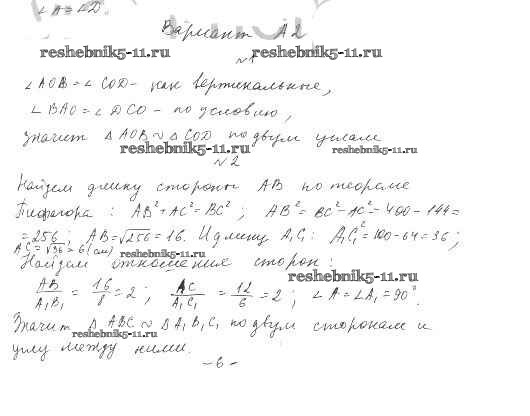 ∠A = ∠D.
Вариант А2
reshebnik5-11.ru №1 reshebnik5-11.ru
∠AOB = ∠COD - как вертикальные,
∠BAO = ∠DCO - по условию,
значит △AOB ~ △COD по двум углам
reshebnik5-11.ru reshebnik5-11.ru
№2
Найдем длину стороны AB по теореме
Пифагора: AB² + AC² = BC²; AB² = BC² - AC² = 400 - 144 =
= 256; AB = √256 = 16. И длину A₁C₁: A₁C₁² = 100 - 64 = 36;
A₁C₁ = √36 = 6 (см) reshebnik5-11.ru
Найдем отношения сторон:
reshebnik5-11.ru
AB/A₁B₁ = 16/8 = 2; AC/A₁C₁ = 12/6 = 2; ∠A = ∠A₁ = 90°.
Значит △ABC ~ △A₁B₁C₁ по двум сторонам и
reshebnik5-11.ru
углу между ними.
- 6 -